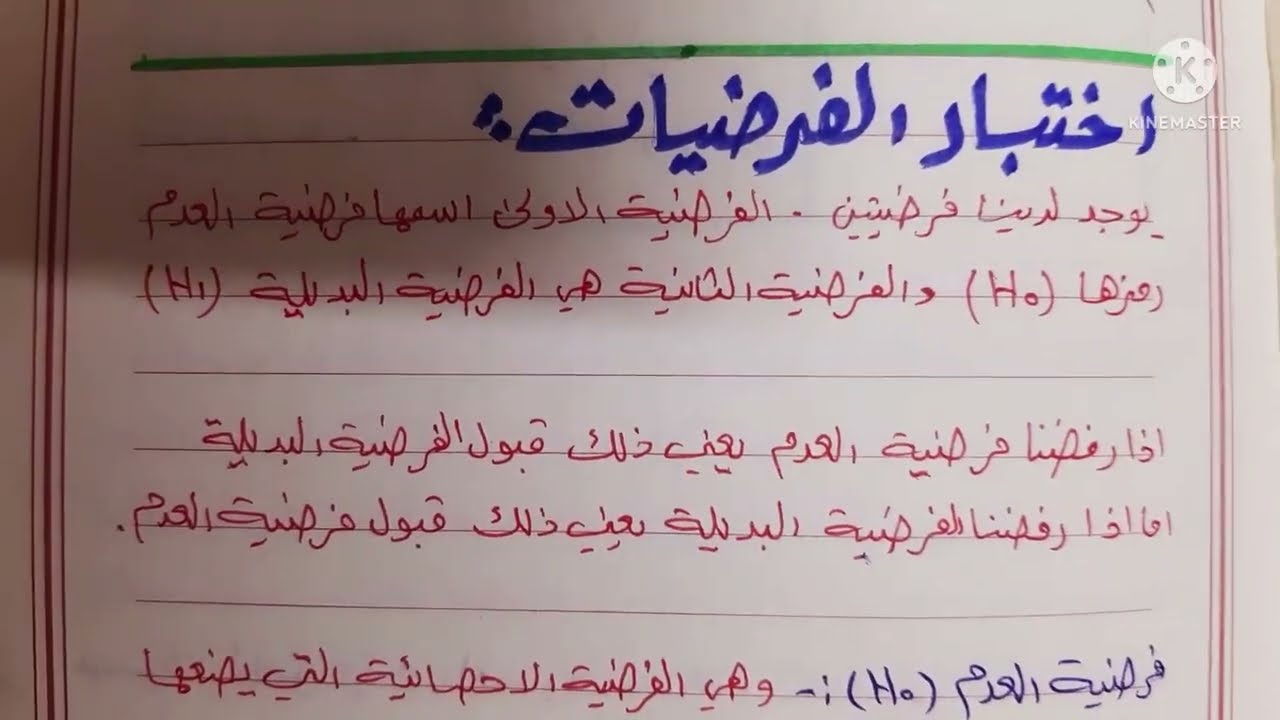 اختبار الفرضيات:
يوجد لدينا فرضيتين. الفرضية الاولى اسمها فرضية العدم
رمزها (H0) والفرضية الثانية هي الفرضية البديلة (H1)
اذا رفضنا فرضية العدم يعني ذلك قبول الفرضية البديلة
اما اذا رفضنا الفرضية البديلة يعني ذلك قبول فرضية العدم.
فرضية العدم (H0) :- وهي الفرضية الاحصائية التي يضعها
KINEMASTER